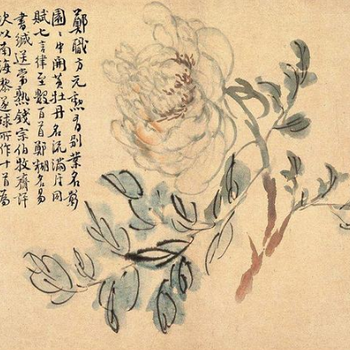 鄭職方元勳有別業名影
園〻中開黃牡丹名流滿
賦七言律至數百首鄭糊名易
書緘送常熟錢宗伯牧齋評
次以南海黎遂球所作十首為